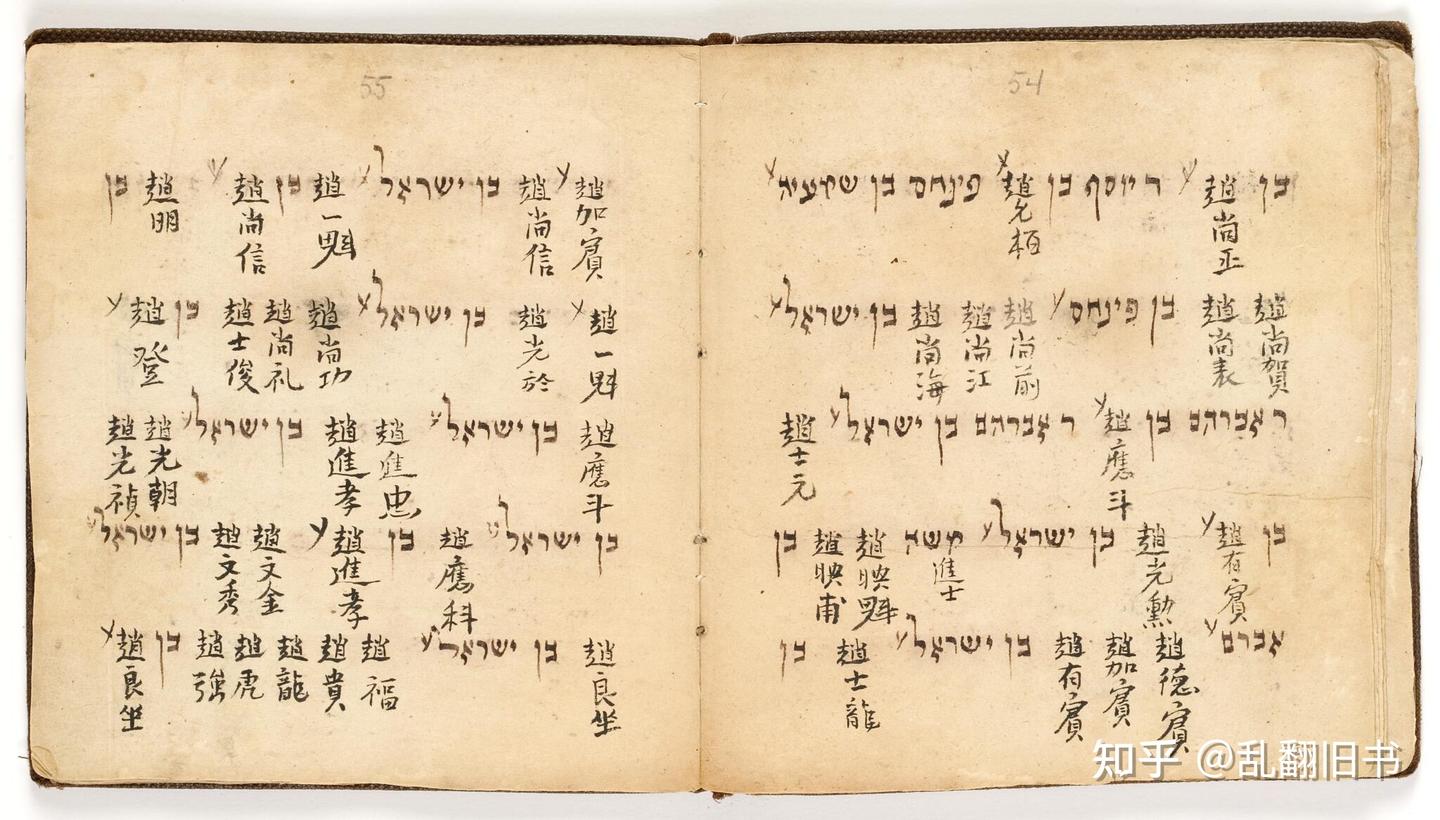 54
בן 趙尚正 ע ר יוסף בן 趙允栢 ע פינחס בן שמעיה ע
趙尚賀 趙尚表 בן פינחס ע 趙尚前 趙尚江 趙尚海 בן ישראל ע
ר אברהם בן 趙應斗 ע ר אברהם בן ישראל ע 趙士元
בן 趙有賓 ע 趙光勲 בן ישראל ע משה 進士 趙映魁 趙映甫 בן
אברם ע 趙德賓 趙加賓 趙有賓 בן ישראל ע 趙士龍 בן
55
趙加賓 ע 趙尚信 בן ישראל ע 趙一魁 בן 趙尚信 ע 趙明 בן
趙一魁 ע 趙光於 בן ישראל ע 趙尚功 趙尚礼 趙士俊 בן 趙登 ע
趙應斗 בן ישראל ע 趙進忠 趙進孝 בן ישראל ע 趙光朝 趙光禎
בן ישראל ע 趙應科 בן 趙進孝 ע 趙文金 趙文秀 בן ישראל ע
趙良坐 בן ישראל ע 趙福 趙貴 趙龍 趙虎 趙强 בן 趙良坐 ע
知乎 @乱翻旧书